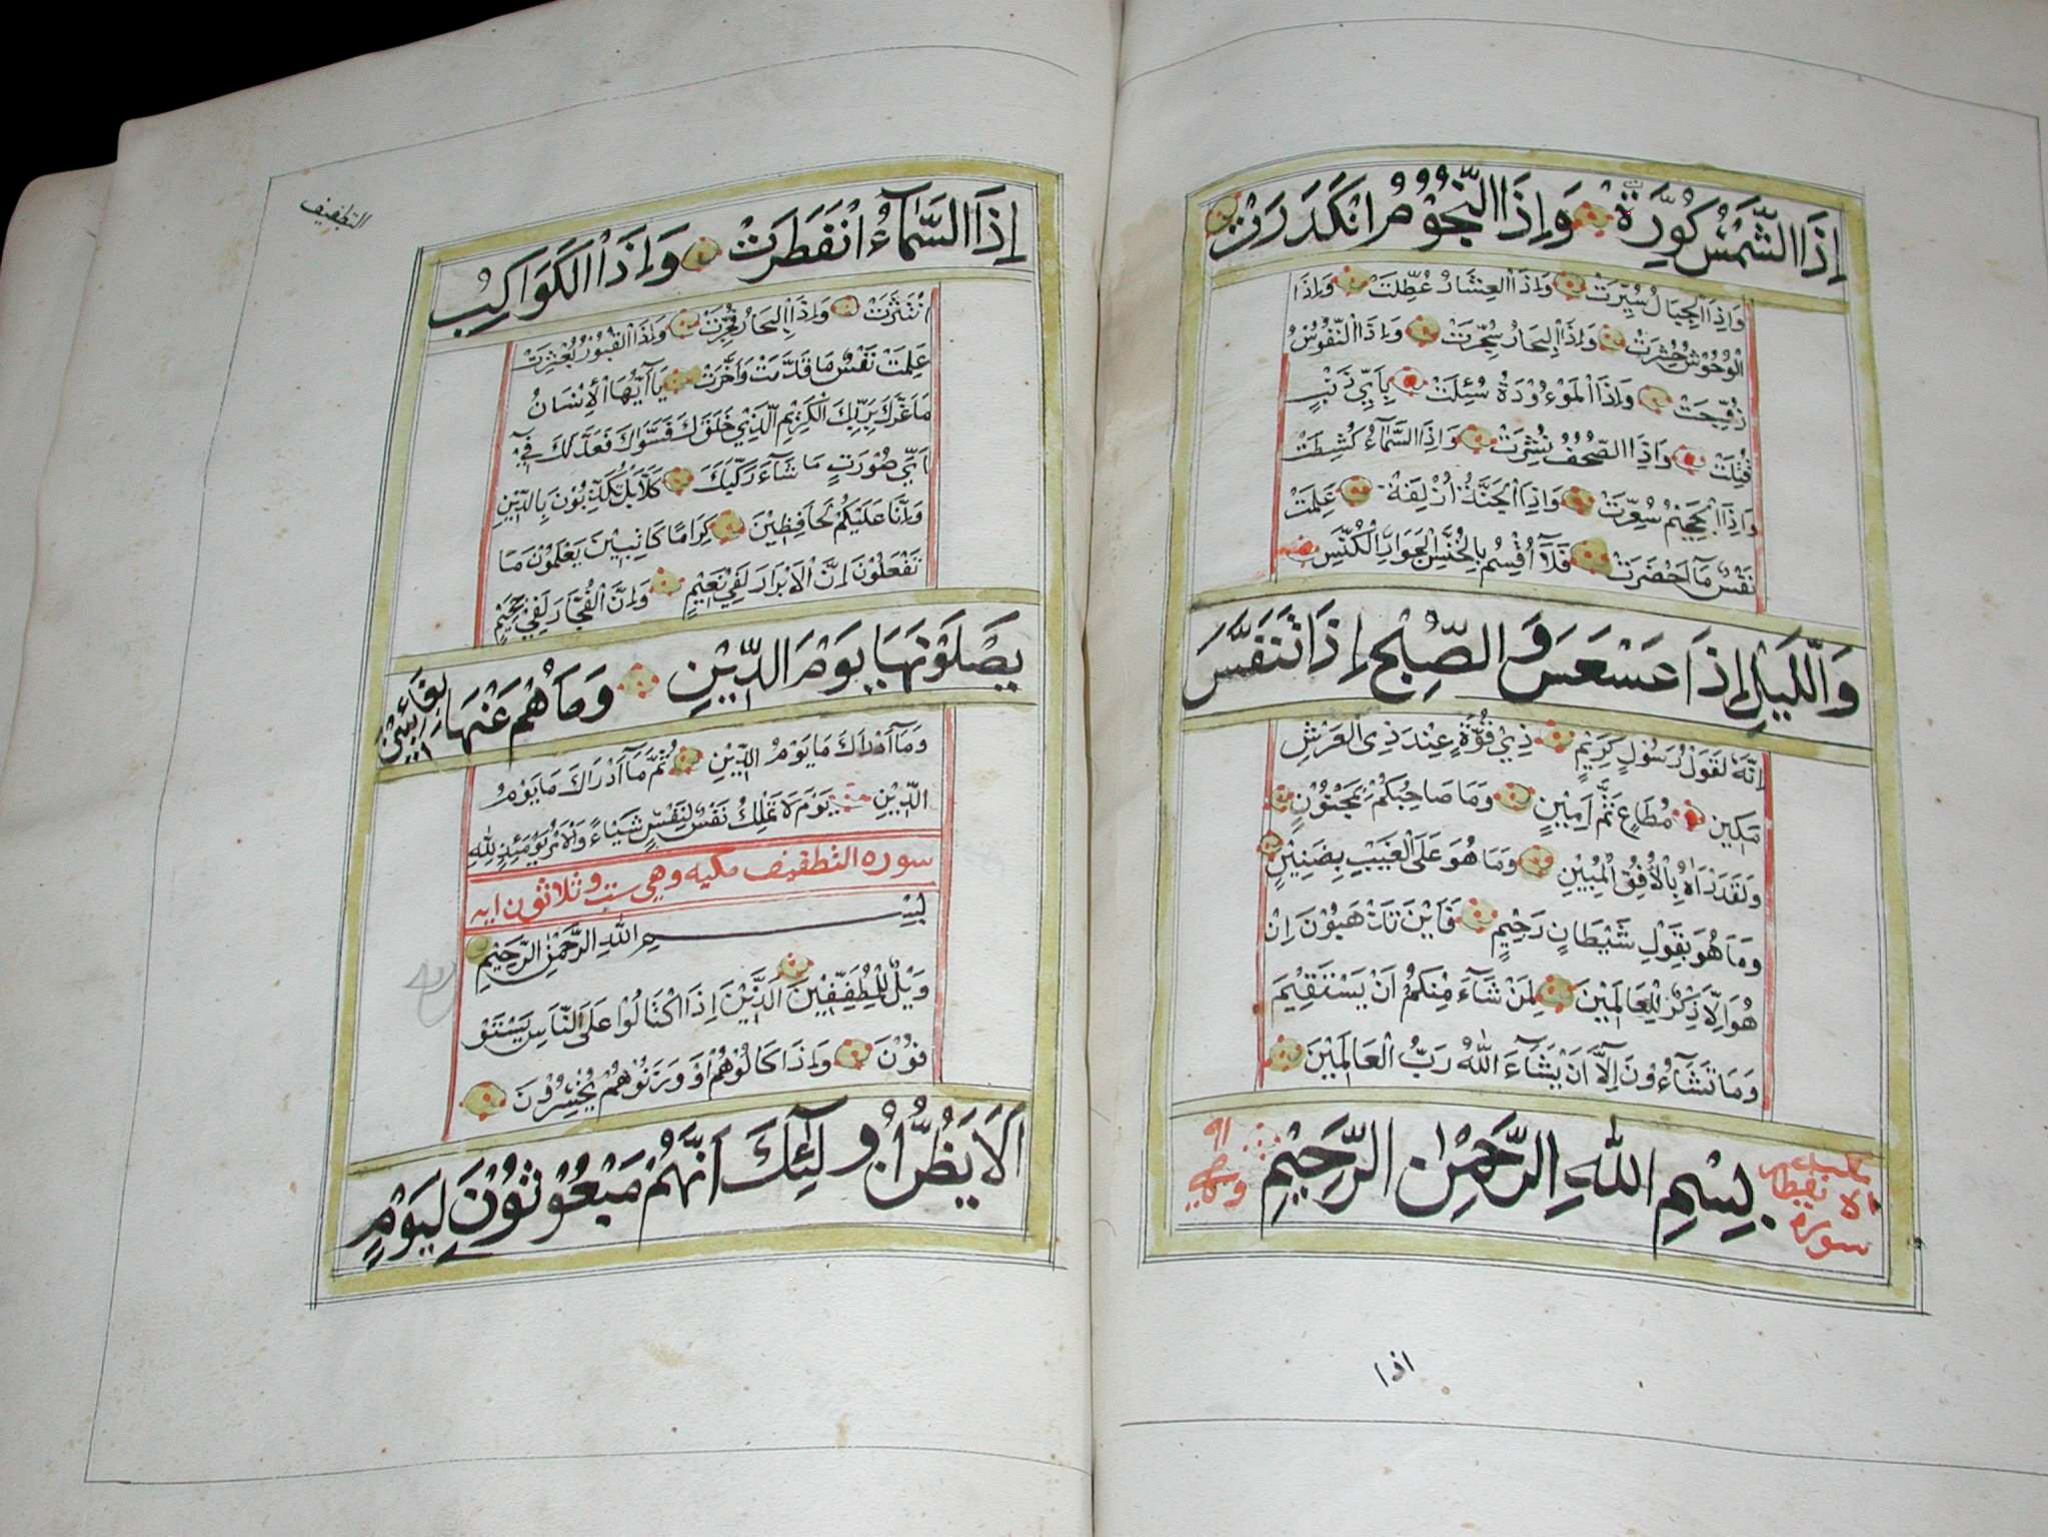 إِذَا الشَّمْسُ كُوِّرَةْ وَإِذَا النُّجُوْمُ انْكَدَرَتْ
وَاِذَا الْجِبَالُ سُيِّرَتْ وَاِذَا الْعِشَارُ عُطِّلَتْ وَاِذَا
الْوُحُوْشُ حُشِرَتْ وَاِذَا الْبِحَارُ سُجِّرَتْ وَاِذَا النُّفُوْسُ
زُوِّجَتْ وَاِذَا الْمَوْءُوْدَةُ سُئِلَتْ بِاَيِّ ذَنْبٍ
قُتِلَتْ وَاِذَا الصُّحُفُ نُشِرَتْ وَاِذَا السَّمَآءُ كُشِطَتْ
وَاِذَا الْجَحِيْمُ سُعِّرَتْ وَاِذَا الْجَنَّةُ اُزْلِفَةْ عَلِمَتْ
نَفْسٌ مَآ اَحْضَرَتْ فَلَآ اُقْسِمُ بِالْخُنَّسِ الْجَوَارِ الْكُنَّسِ
وَالَّيْلِ إِذَا عَسْعَسَ وَالصُّبْحِ إِذَا تَنَفَّسَ
اِنَّهُ لَقَوْلُ رَسُوْلٍ كَرِيْمٍ ذِيْ قُوَّةٍ عِنْدَ ذِي الْعَرْشِ
مَكِيْنٍ مُطَاعٍ ثَمَّ اَمِيْنٍ وَمَا صَاحِبُكُمْ بِمَجْنُوْنٍ
وَلَقَدْ رَاٰهُ بِالْاُفُقِ الْمُبِيْنِ وَمَا هُوَ عَلَى الْغَيْبِ بِضَنِيْنٍ
وَمَا هُوَ بِقَوْلِ شَيْطَانٍ رَجِيْمٍ فَاَيْنَ تَذْهَبُوْنَ اِنْ
هُوَ اِلَّا ذِكْرٌ لِلْعَالَمِيْنَ لِمَنْ شَآءَ مِنْكُمْ اَنْ يَسْتَقِيْمَ
وَمَا تَشَآءُوْنَ اِلَّآ اَنْ يَشَآءَ اللّٰهُ رَبُّ الْعَالَمِيْنَ
سورة الانفطار مكية
بِسْمِ اللّٰهِ الرَّحْمٰنِ الرَّحِيْمِ
اذا
التطفيف
إِذَا السَّمَآءُ انْفَطَرَتْ وَإِذَا الْكَوَاكِبُ
انْتَثَرَتْ وَاِذَا الْبِحَارُ فُجِّرَتْ وَاِذَا الْقُبُوْرُ بُعْثِرَتْ
عَلِمَتْ نَفْسٌ مَا قَدَّمَتْ وَاَخَّرَتْ يَآ اَيُّهَا الْاِنْسَانُ
مَا غَرَّكَ بِرَبِّكَ الْكَرِيْمِ الَّذِيْ خَلَقَكَ فَسَوَّاكَ فَعَدَلَكَ فِيْ
اَيِّ صُوْرَتٍ مَا شَآءَ رَكَّبَكَ كَلَّا بَلْ تُكَذِّبُوْنَ بِالدِّيْنِ
وَاِنَّا عَلَيْكُمْ لَحَافِظِيْنَ كِرَامًا كَاتِبِيْنَ يَعْلَمُوْنَ مَا
تَفْعَلُوْنَ اِنَّ الْاَبْرَارَ لَفِيْ نَعِيْمٍ وَاِنَّ الْفُجَّارَ لَفِيْ جَحِيْمٍ
يَصْلَوْنَهَا يَوْمَ الدِّيْنِ وَمَا هُمْ عَنْهَا بِغَآئِبِيْنَ
وَمَآ اَدْرَاكَ مَا يَوْمُ الدِّيْنِ ثُمَّ مَآ اَدْرَاكَ مَا يَوْمُ
الدِّيْنِ يَوْمَ لَا تَمْلِكُ نَفْسٌ لِنَفْسٍ شَيْاءً وَالْاَمْرُ يَوْمَئِذٍ لِلّٰهِ
سوره التطفيف مكيه وهي ست وثلاثون ايه
بِسْمِ اللّٰهِ الرَّحْمٰنِ الرَّحِيْمِ
وَيْلٌ لِلْمُطَفِّفِيْنَ الَّذِيْنَ اِذَا اكْتَالُوْا عَلَى النَّاسِ يَسْتَوْ
فُوْنَ وَاِذَا كَالُوْهُمْ اَوْ وَزَنُوْهُمْ يُخْسِرُوْنَ
اَلَا يَظُنُّ اُولٰٓئِكَ اَنَّهُمْ مَبْعُوْثُوْنَ لِيَوْمٍ